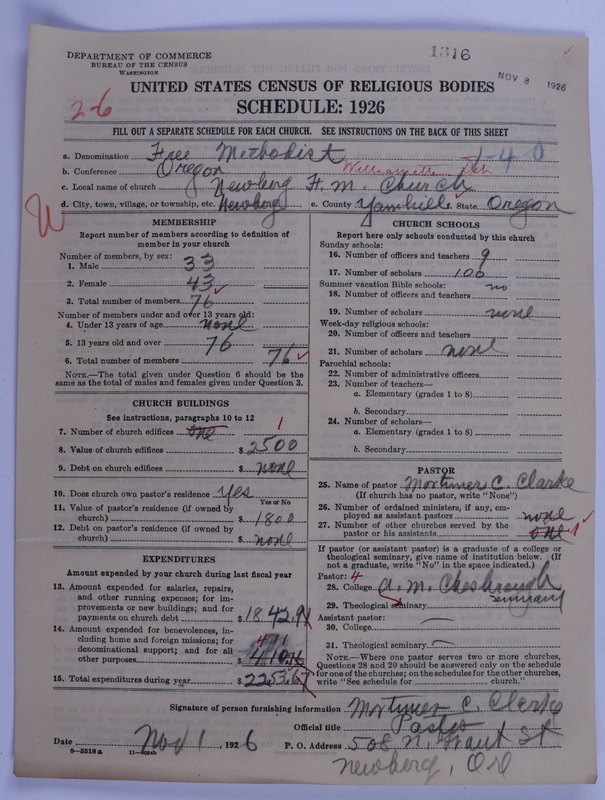 1316
DEPARTMENT OF COMMERCE
BUREAU OF THE CENSUS
WASHINGTON
NOV 8 1926
UNITED STATES CENSUS OF RELIGIOUS BODIES
SCHEDULE: 1926
2-6
FILL OUT A SEPARATE SCHEDULE FOR EACH CHURCH. SEE INSTRUCTIONS ON THE BACK OF THIS SHEET
a. Denomination Free Methodist 1-40
b. Conference Oregon
c. Local name of church Newberg F. M. Church
d. City, town, village, or township, etc. Newberg e. County Yamhill f. State Oregon
MEMBERSHIP
Report number of members according to definition of
member in your church
Number of members, by sex:
1. Male 33
2. Female 43
3. Total number of members 76
Number of members under and over 13 years old:
4. Under 13 years of age none
5. 13 years old and over 76
6. Total number of members 76
NOTE.—The total given under Question 6 should be the
same as the total of males and females given under Question 3.
CHURCH BUILDINGS
See instructions, paragraphs 10 to 12
7. Number of church edifices one 1
8. Value of church edifices $ 2500
9. Debt on church edifices $ none
10. Does church own pastor's residence yes
Yes or No
11. Value of pastor's residence (if owned by
church) $ 1800
12. Debt on pastor's residence (if owned by
church) $ none
EXPENDITURES
Amount expended by your church during last fiscal year
13. Amount expended for salaries, repairs,
and other running expenses; for im-
provements or new buildings; and for
payments on church debt $ 1842.91
14. Amount expended for benevolences, in-
cluding home and foreign missions; for
denominational support; and for all
other purposes $ 410.76
411
15. Total expenditures during year $ 2253.67
CHURCH SCHOOLS
Report here only schools conducted by this church
Sunday schools:
16. Number of officers and teachers 9
17. Number of scholars 100
Summer vacation Bible schools: no
18. Number of officers and teachers
19. Number of scholars none
Week-day religious schools:
20. Number of officers and teachers
21. Number of scholars none
Parochial schools:
22. Number of administrative officers
23. Number of teachers—
a. Elementary (grades 1 to 8)
b. Secondary
24. Number of scholars—
a. Elementary (grades 1 to 8)
b. Secondary
PASTOR
25. Name of pastor Mortimer C. Clarke
(If church has no pastor, write "None")
26. Number of ordained ministers, if any, em-
ployed as assistant pastors none
27. Number of other churches served by the
pastor or his assistants one 1
If pastor (or assistant pastor) is a graduate of a college or
theological seminary, give name of institution below. (If
not a graduate, write "No" in the space indicated.)
Pastor: 4
28. College A. M. Chesbrough
Seminary
29. Theological seminary
Assistant pastor:
30. College
31. Theological seminary
NOTE.—Where one pastor serves two or more churches,
Questions 28 and 29 should be answered only on the schedule
for one of the churches; on the schedules for the other churches,
write "See schedule for church."
Signature of person furnishing information Mortimer C. Clarke
Official title Pastor
Date Nov 1, 1926 P. O. Address 508 N. Grant St
Newberg, Ore
8—5518a